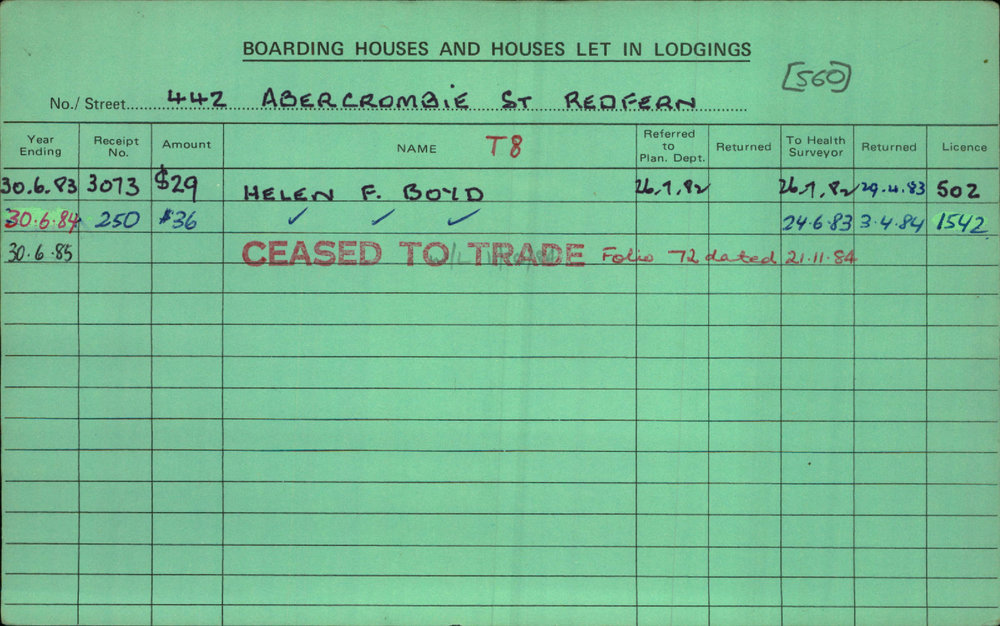 BOARDING HOUSES AND HOUSES LET IN LODGINGS
[560]
No./ Street 442 ABERCROMBIE ST REDFERN
Year Ending Receipt No. Amount NAME T8 Referred to Plan. Dept. Returned To Health Surveyor Returned Licence
30.6.83 3073 $29 HELEN F. BOYD 26.7.82 26.7.82 29.4.83 502
30.6.84 250 $36 ✓ ✓ ✓ 24.6.83 3.4.84 1542
30.6.85 CEASED TO TRADE Folio 72 dated 21.11.84